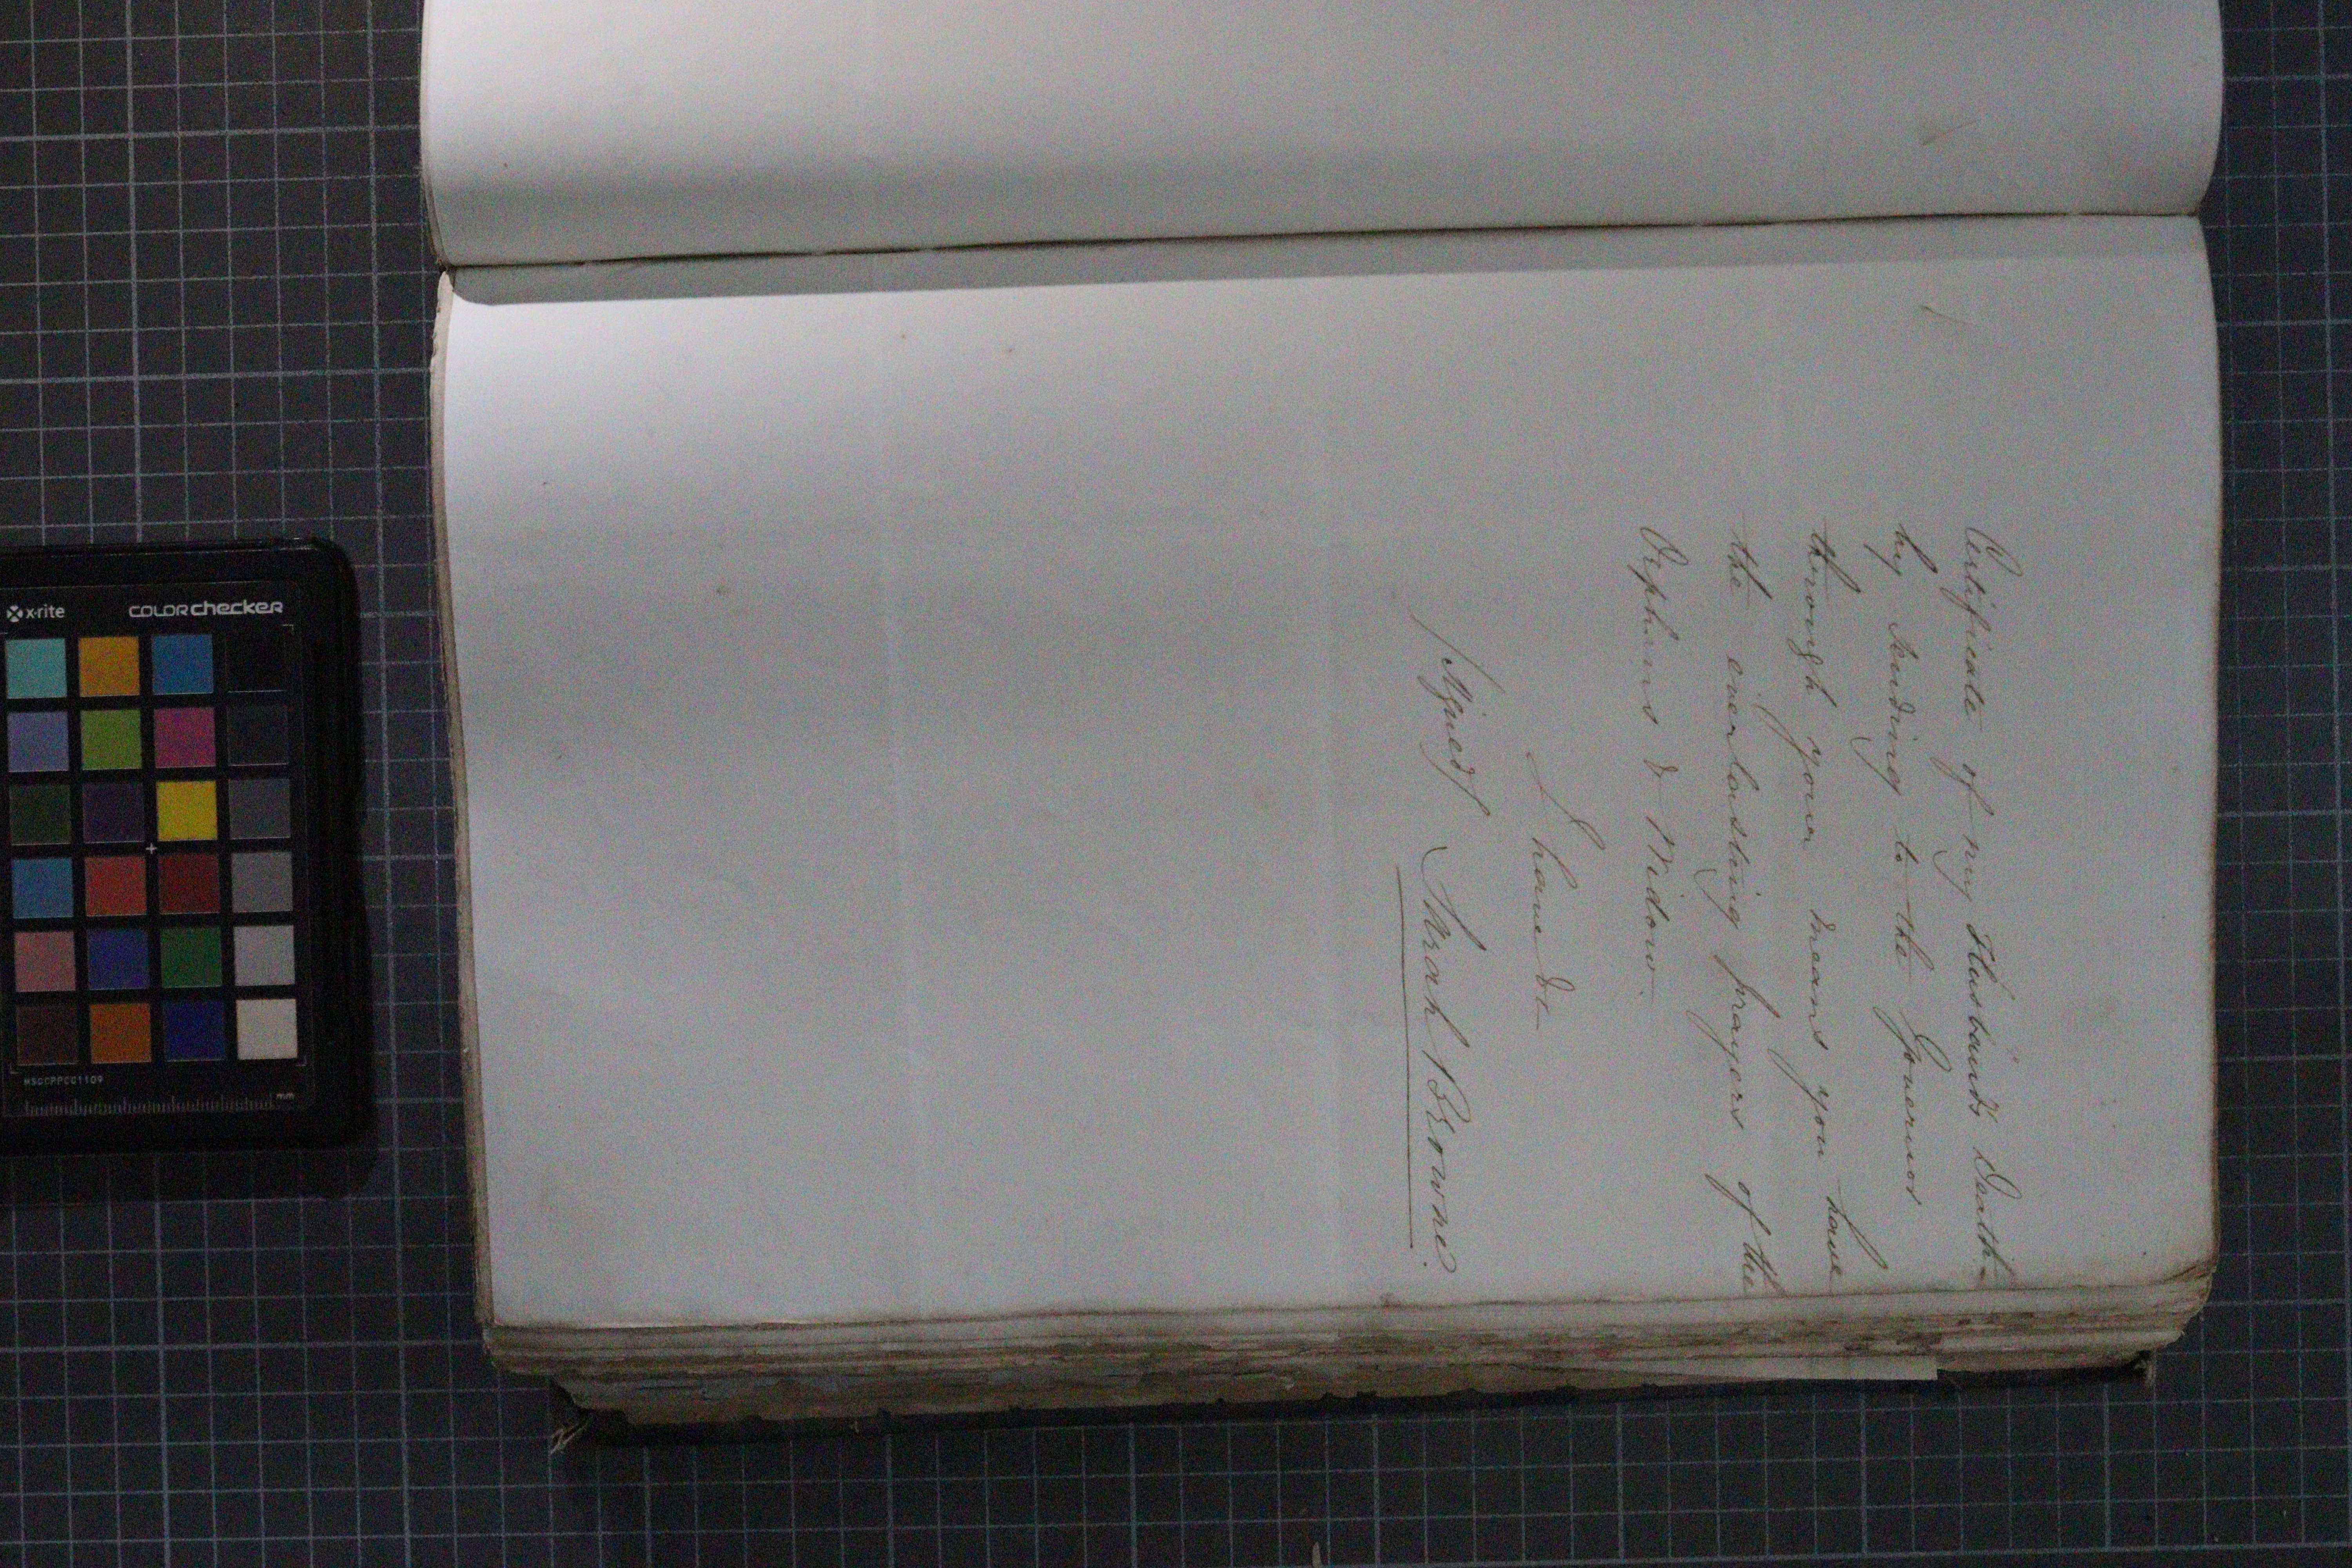 Certificate of my Husband's Death
by sending to the Governor
through your means you have
the everlasting prayers of the
Orphans & Widow.
I have &c
(signed) Sarah Browne.
x-rite
colorchecker
MSCCPPCC1109
mm